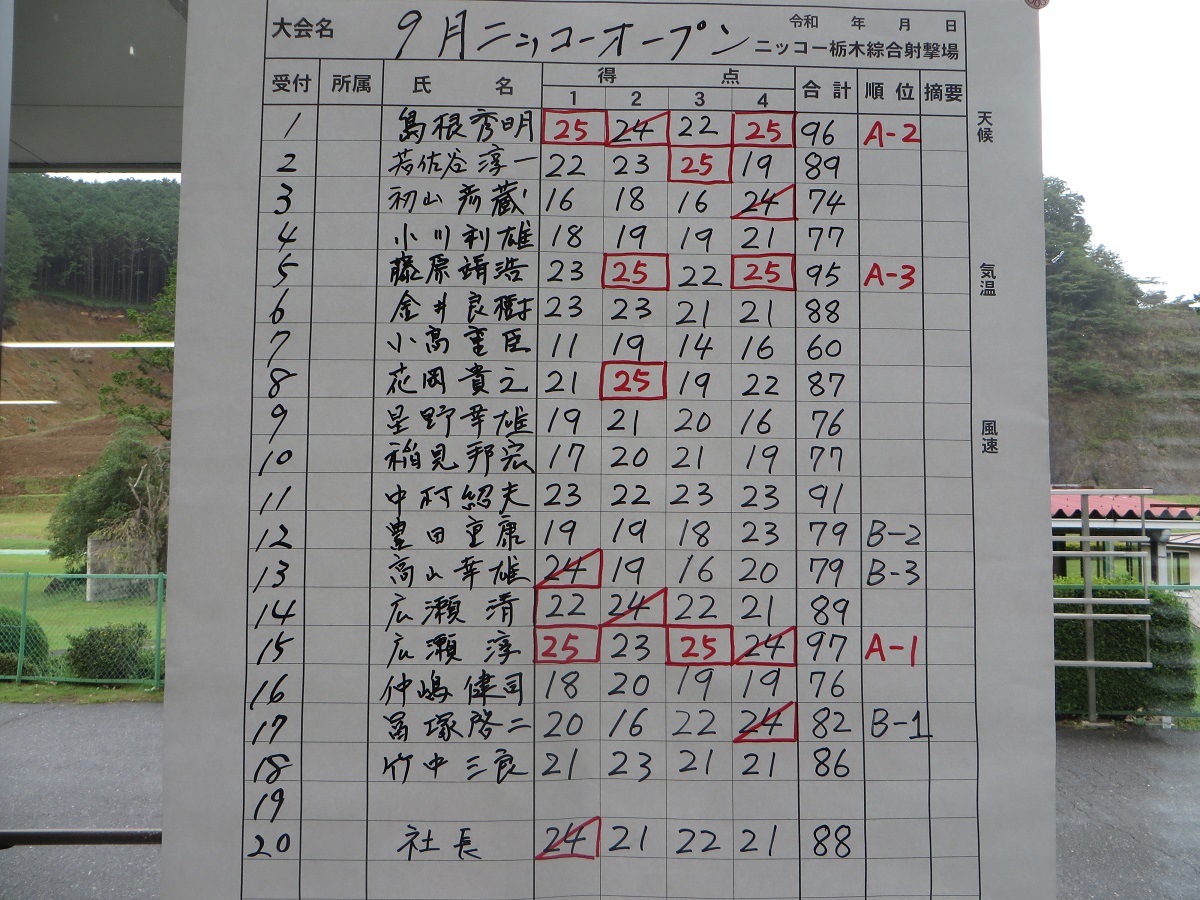 大会名 9月ニッコーオープン 令和 年 月 日
ニッコー栃木綜合射撃場
受付 所属 氏名 得点 合計 順位 摘要
1 2 3 4
1 島根秀明 25 24 22 25 96 A-2
2 若佐谷淳一 22 23 25 19 89
3 初山彦蔵 16 18 16 24 74
4 小川利雄 18 19 19 21 77
5 藤原靖浩 23 25 22 25 95 A-3
6 金井良樹 23 23 21 21 88
7 小高重臣 11 19 14 16 60
8 花岡貴之 21 25 19 22 87
9 星野幸雄 19 21 20 16 76
10 稲見邦宏 17 20 21 19 77
11 中村紹夫 23 22 23 23 91
12 豊田重康 19 19 18 23 79 B-2
13 高山幸雄 24 19 16 20 79 B-3
14 広瀬清 22 24 22 21 89
15 広瀬淳 25 23 25 24 97 A-1
16 仲嶋健司 18 20 19 19 76
17 冨塚啓二 20 16 22 24 82 B-1
18 竹中三良 21 23 21 21 86
19
20 社長 24 21 22 21 88
天候
気温
風速